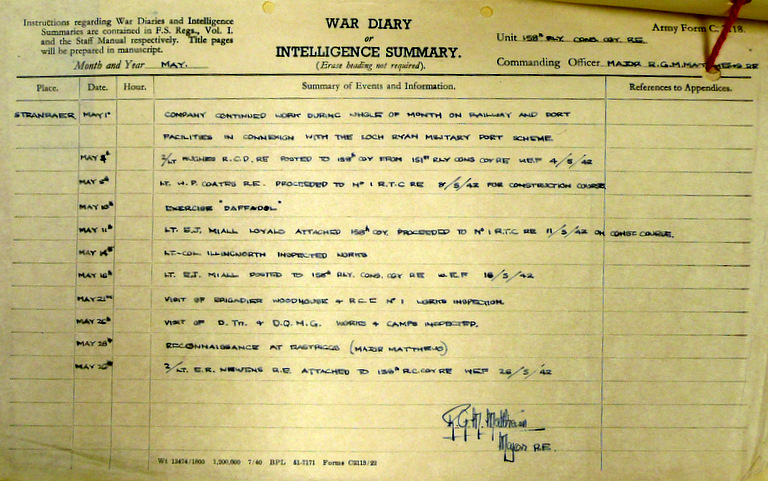 Instructions regarding War Diaries and Intelligence
Summaries are contained in F.S. Regs., Vol. I.
and the Staff Manual respectively. Title pages
will be prepared in manuscript.
Month and Year MAY.
WAR DIARY
or
INTELLIGENCE SUMMARY.
(Erase heading not required).
Army Form C. 2118.
Unit 158th RLY. CONS. COY. RE.
Commanding Officer MAJOR R.G.M. MATTHEWS RE
Place. Date. Hour. Summary of Events and Information. References to Appendices.
STRANRAER MAY 1st COMPANY CONTINUED WORK DURING WHOLE OF MONTH ON RAILWAY AND PORT
FACILITIES IN CONNEXION WITH THE LOCH RYAN MILITARY PORT SCHEME.
MAY 4th 2/LT HUGHES R.C.D. RE POSTED TO 158th COY FROM 151st RLY CONS COY RE WEF 4/5/42
MAY 8th LT. W.P. COATES R.E. PROCEEDED TO No 1 R.T.C RE 8/5/42 FOR CONSTRUCTION COURSE
MAY 10th EXERCISE "DAFFADOL"
MAY 11th LT. E.J. MIALL LOYALS ATTACHED 158th COY. PROCEEDED TO No 1 R.T.C RE 11/5/42 ON CONST COURSE.
MAY 14th LT-COL ILLINGWORTH INSPECTED WORKS
MAY 16th LT. E.J. MIALL POSTED TO 158th RLY. CONS. COY RE W.E.F 16/5/42
MAY 21st VISIT OF BRIGADIER WOODHOUSE & R.C.E No 1 WORKS INSPECTION.
MAY 26th VISIT OF D. Tn. & D.Q.M.G. WORKS & CAMPS INSPECTED.
MAY 28th RECONNAISSANCE AT EASTRIGGS (MAJOR MATTHEWS)
MAY 28th 2/LT. E.R. NEWENS R.E. ATTACHED TO 158th R.C. COY RE WEF 28/5/42
R.G.M. Matthews
Major RE.
Wt 13474/1800 1,200,000 7/40 BPL 51-7171 Forms C2118/22